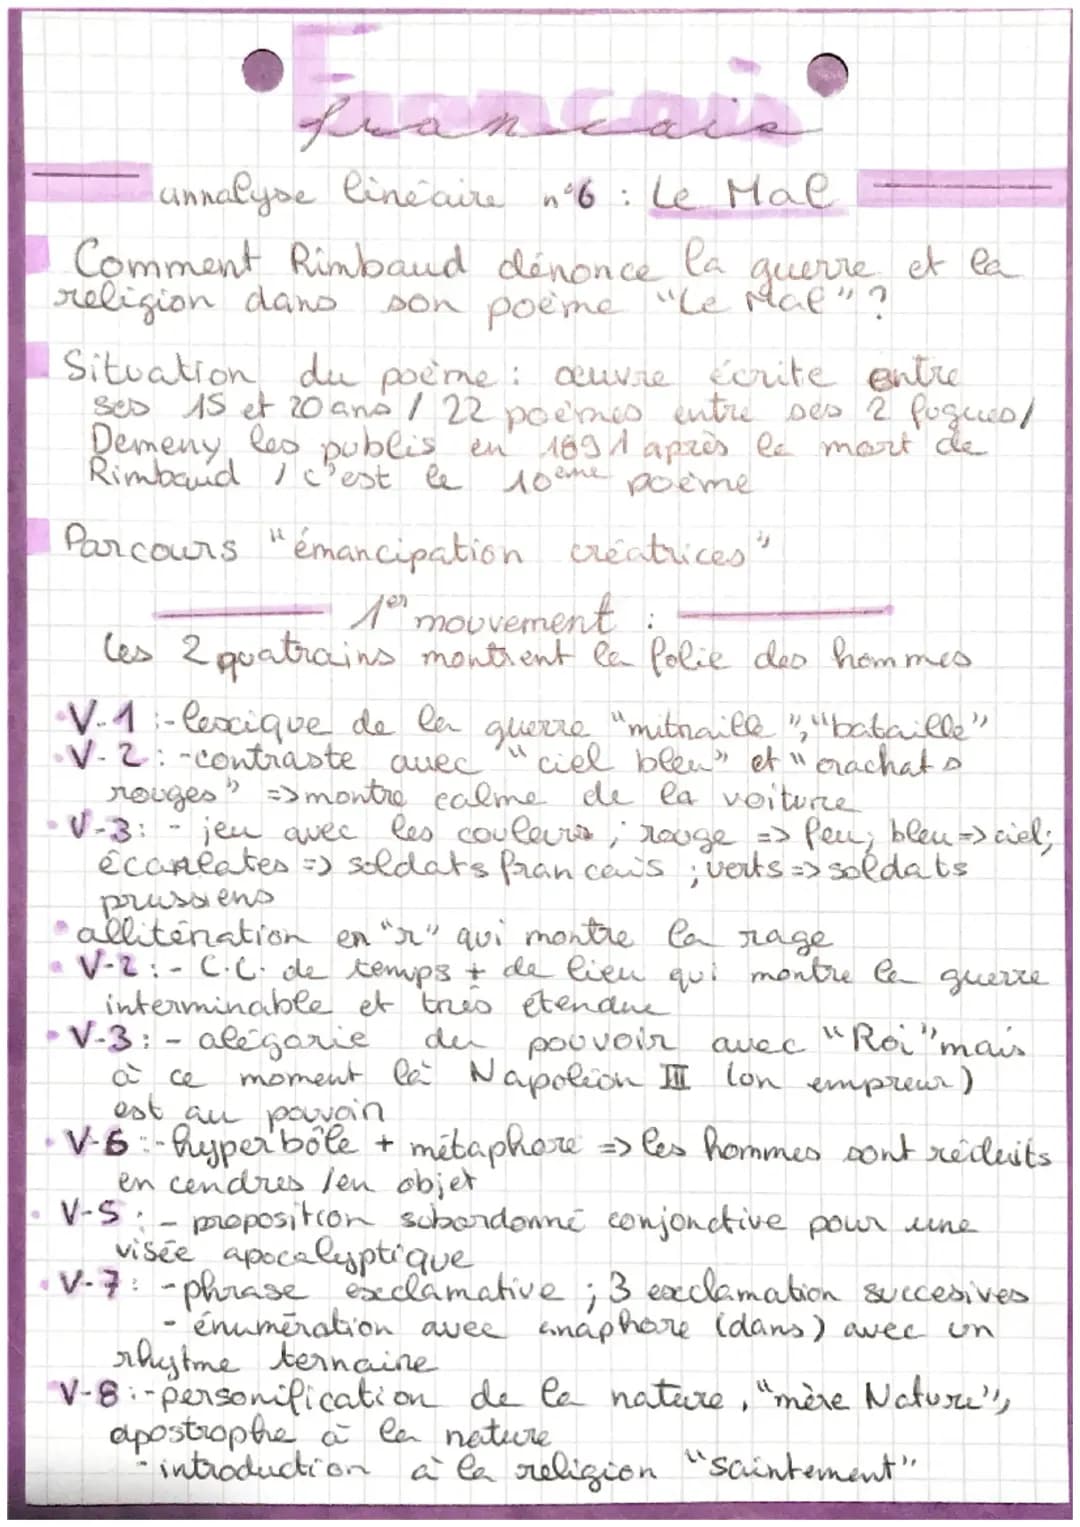 Français
français
annalyse linéaire n°6 : Le Mal
Comment Rimbaud dénonce la guerre et la
religion dans son poème "Le Mal" ?
Situation du poème : œuvre écrite entre
ses 15 et 20 ans / 22 poèmes entre ses 2 fugues/
Demeny les publis en 1891 après la mort de
Rimbaud / c'est le 10ème poème
Parcours "émancipation créatrices"
1er mouvement :
les 2 quatrains montrent la folie des hommes
V-1 :-lexique de la guerre "mitraille", "bataille"
V-2 : -contraste avec "ciel bleu" et "crachats
rouges" => montre calme de la voiture
V-3: - jeu avec les couleurs ; rouge => feu; bleu => ciel;
écarlates => soldats francais ; verts => soldats
prussiens
allitération en "r" qui montre la rage
V-2 : - C.C. de temps + de lieu qui montre la guerre
interminable et très étendue
V-3 : - alégorie du pouvoir avec "Roi" mais
à ce moment là Napoléon III (on empreur)
est au pouvoir
V-6 :-hyperbôle + métaphore => les hommes sont réduits
en cendres /en objet
V-5 : - proposition subordonné conjonctive pour une
visée apocalyptique
V-7 : -phrase exclamative ; 3 exclamation succesives
- énumération avec anaphore (dans) avec un
rhytme ternaire
V-8 :-personification de la nature, "mère Nature",
apostrophe à la nature
-introduction à la religion "saintement"